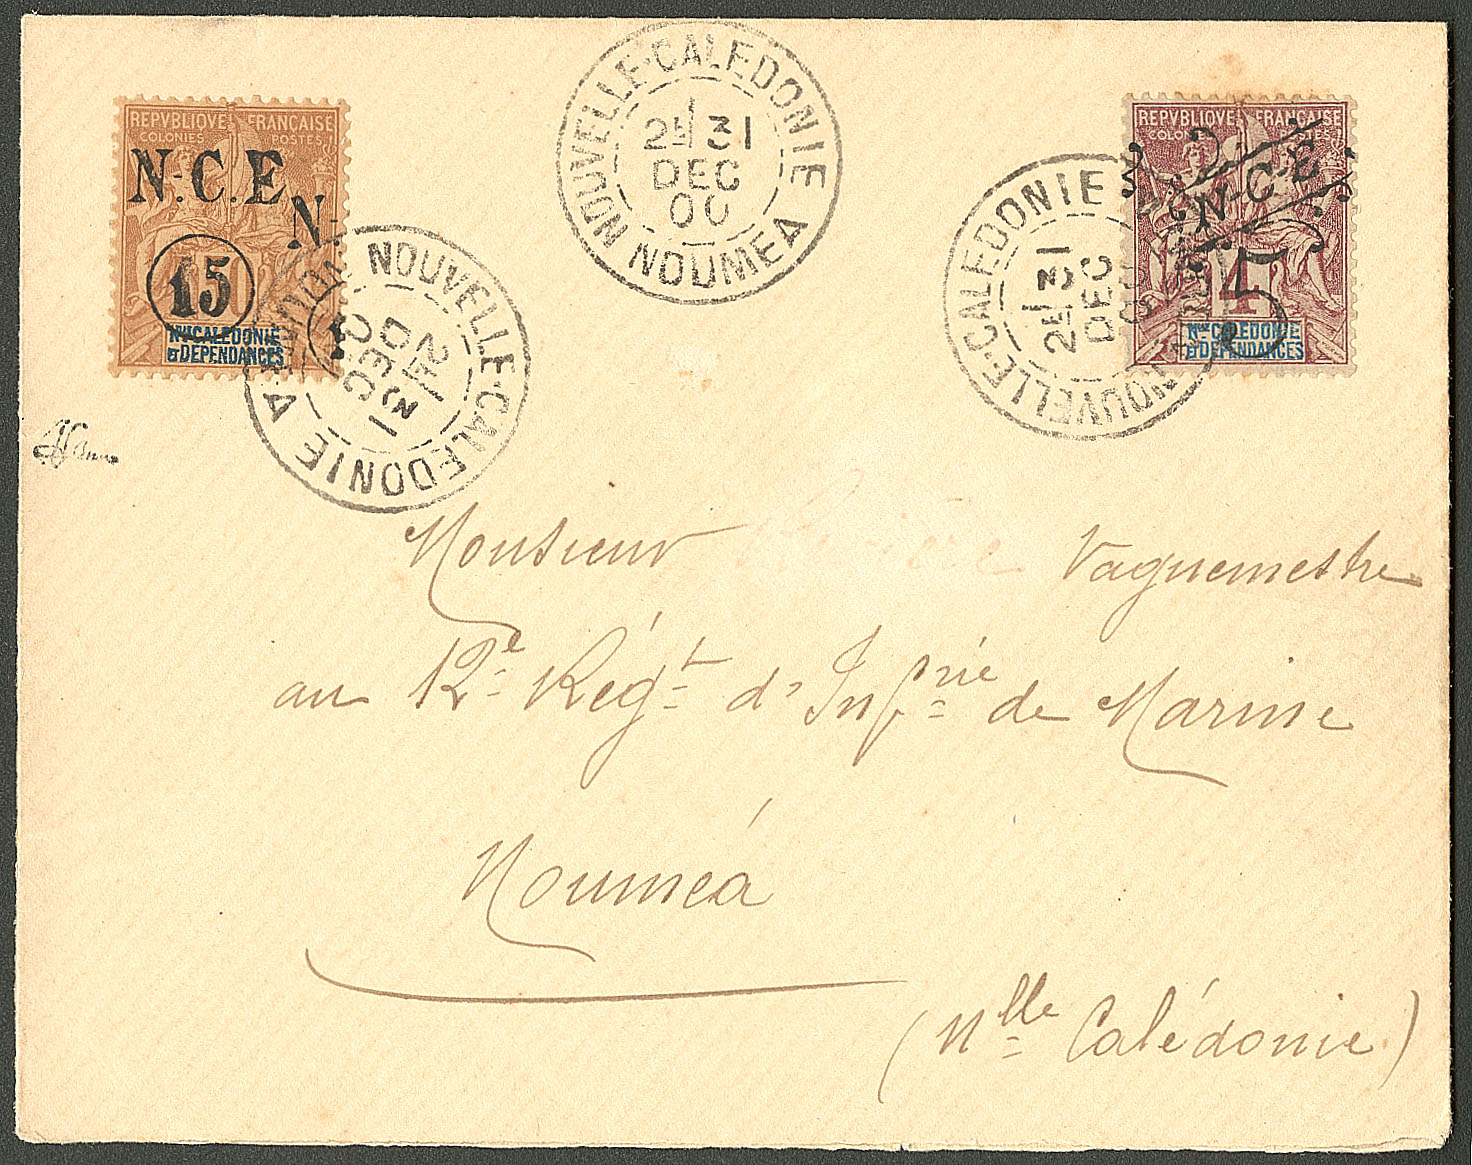 REPVBLIQVE FRANÇAISE
COLONIES POSTES
N.-C.E.
N.-
15
Nlle CALEDONIE
& DEPENDANCES
NOUVELLE-CALEDONIE
2E 31
DEC
00
NOUMEA
REPVBLIQVE FRANÇAISE
COLONIES POSTES
N-C-E
5
4
Nlle CALEDONIE
& DEPENDANCES
NOUVELLE-CALEDONIE
2E 31
DEC
NOUVELLE-CALEDONIE
2E 31
DEC
Monsieur Vaguemestre
au 12e Régt d'Infrie de Marine
Nouméa
(Nlle Calédonie)